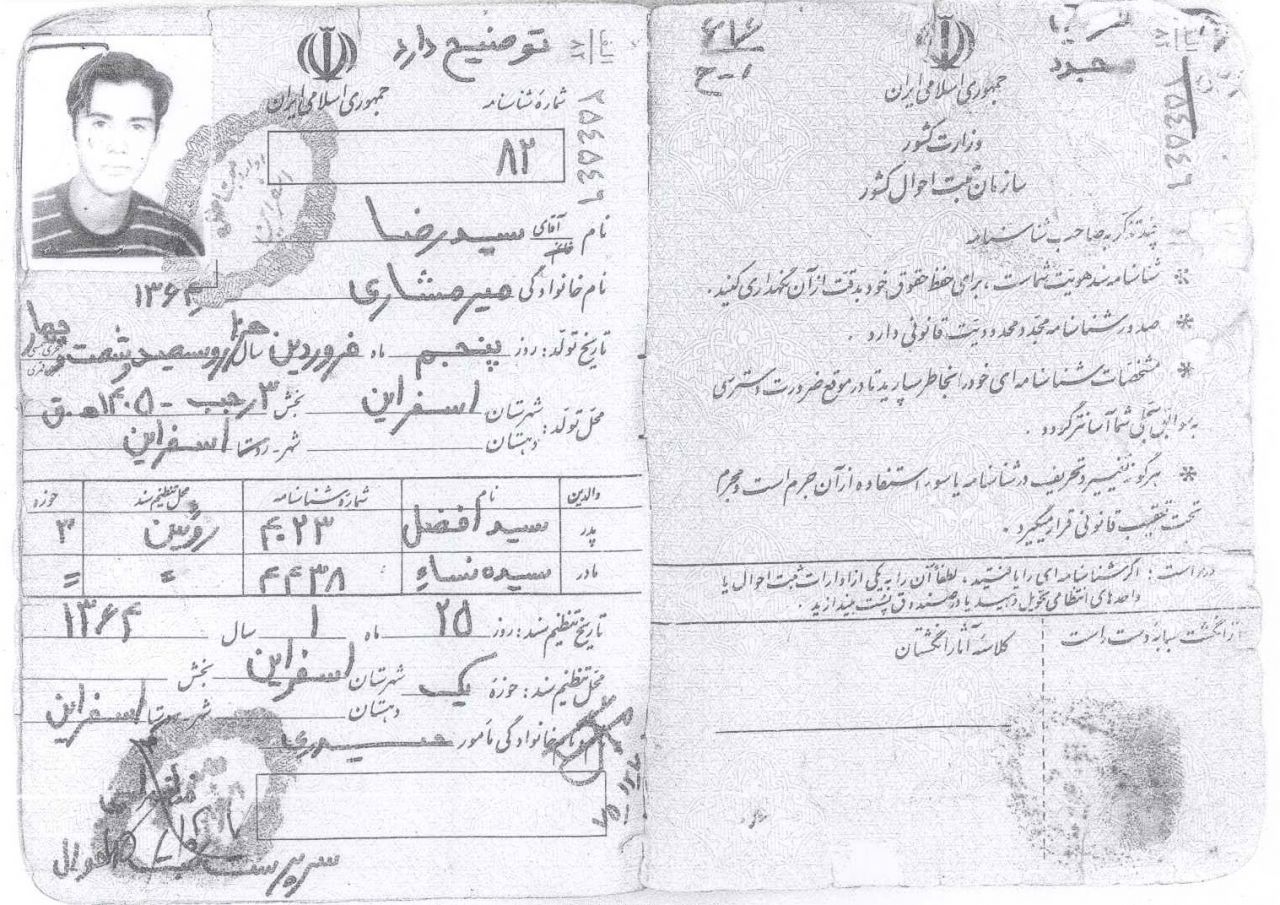 توضیح دارد
جمهوری اسلامی ایران
شماره شناسنامه
۸۲
نام آقای سیدرضا
خانم
نام خانوادگی میرمشاری
۱۳۶۴
تاریخ تولد: روز پنجم ماه فروردین سال هزاروسیصدوشصت و چهار
محل تولد: شهرستان اسفراین بخش ۳ رجب - ۱۴۰۵ هـ.ق
دهستان شهر-روستا اسفراین
والدین نام شماره شناسنامه محل تنظیم سند حوزه
پدر سید افضل روئین ۳
مادر سیده نساء ۴۴۳۸ = =
تاریخ تنظیم سند: روز ۲۵ ماه ۱ سال ۱۳۶۴
محل تنظیم سند: حوزه یک شهرستان اسفراین بخش
دهستان شهر-روستا اسفراین
نام خانوادگی مأمور حیدری
سرپرست ثبت احوال
۲۵۴۵۴۹
الف
۸۲
۶۷۶
جمهوری اسلامی ایران
وزارت کشور
سازمان ثبت احوال کشور
الف
۸۲
۲۵۴۵۴۹
چند تذکر به صاحب شناسنامه
* شناسنامه سند هویت شماست، برای حفظ حقوق خود بدقت از آن نگهداری کنید.
* صدور شناسنامه مجدد محدودیت قانونی دارد.
* مشخصات شناسنامه ای خود را بخاطر بسپارید تا در موقع ضرورت دسترسی
به سوابق سجلی شما آسانتر گردد.
* هرگونه تغییر و تحریف در شناسنامه یا سوء استفاده از آن جرم است و مجرم
تحت تعقیب قانونی قرار میگیرد.
درخواست: اگر شناسنامه ای را یافتید، لطفاً آن را به یکی از ادارات ثبت احوال یا
واحدهای انتظامی تحویل دهید یا در صندوق پست بیندازید.
اثر انگشت سبابه دست راست
کلاسه آثار انگشتان